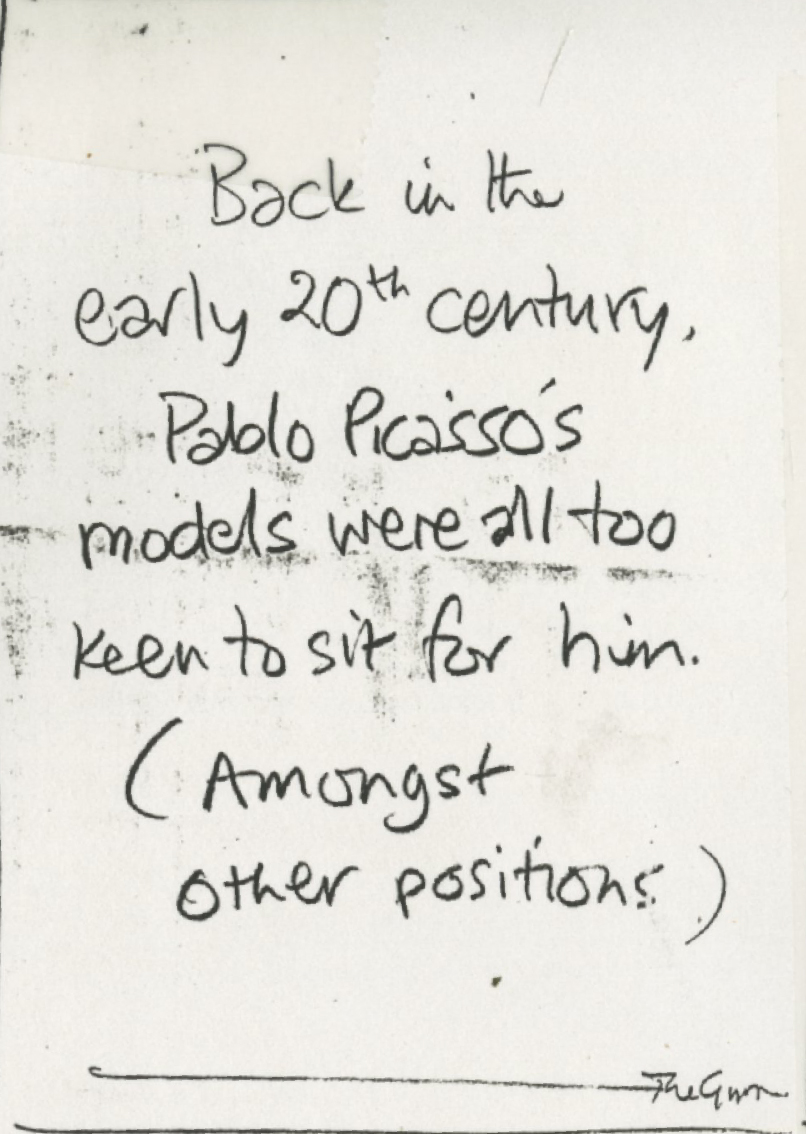 Back in the
early 20th century,
Pablo Picasso's
models were all too
keen to sit for him.
(Amongst
other positions.)